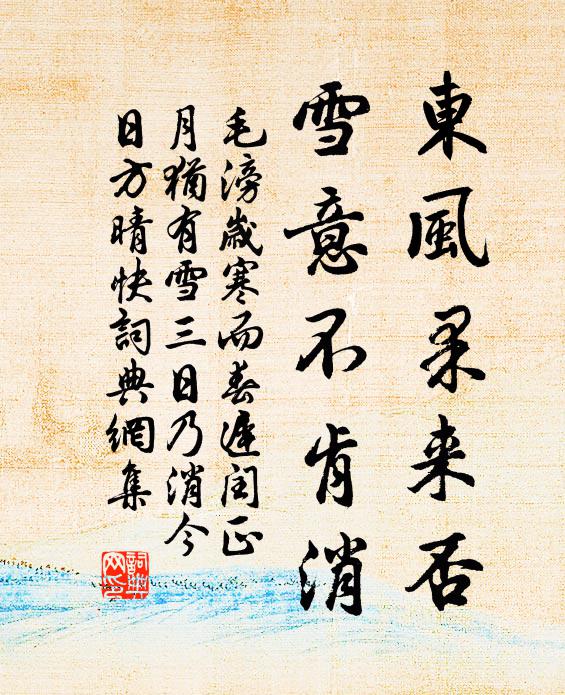 東風果来否
雪意不肯消
毛滂歲寒而春遲閏正
月猶有雪三日乃消今
日方晴快詞典網集
詞典网印